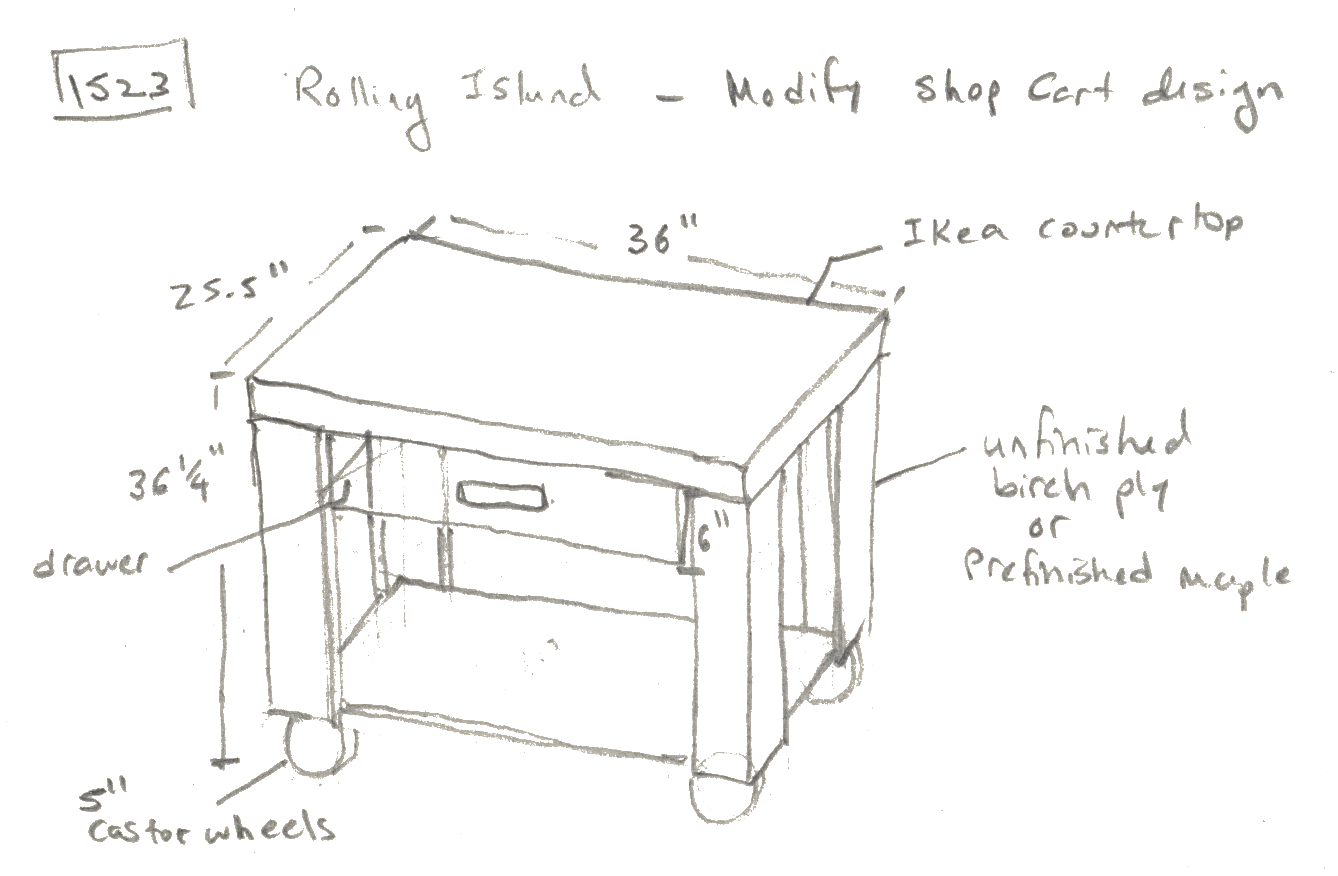 1523 Rolling Island - Modify Shop Cart design
36"
IKea countertop
25.5"
36 1/4"
unfinished
birch ply
or
Prefinished maple
6"
drawer
5"
castor wheels